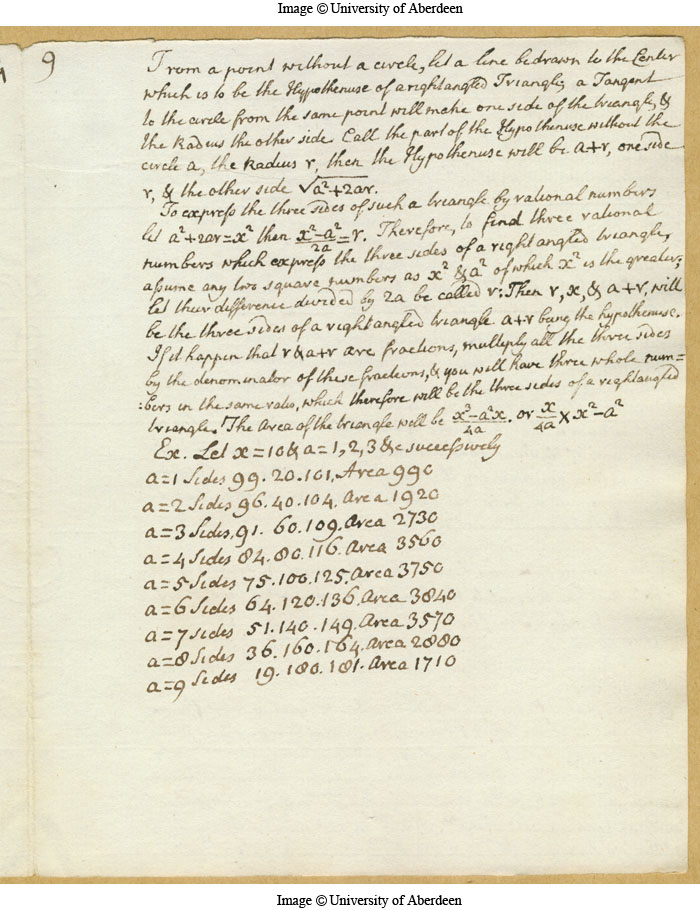 Image © University of Aberdeen
9
From a point without a circle, let a line be drawn to the Center
which is to be the Hypothenuse of a right angled Triangle, a Tangent
to the circle from the same point will make one side of the triangle, &
the Radius the other side. Call the part of the Hypothenuse without the
circle a, the Radius r, then the Hypothenuse will be a+r, one side
r, & the other side √a²+2ar.
To express the three sides of such a triangle by rational numbers
let a²+2ar=x² then x²-a²/2a=r. Therefore, to find three rational
numbers which express the three sides of a right angled triangle,
assume any two square numbers as x² & a² of which x² is the greater;
let their difference divided by 2a be called r: Then r, x, & a+r, will
be the three sides of a right angled triangle a+r being the hypothenuse.
If it happen that r & a+r are fractions, multiply all the three sides
by the denominator of these fractions, & you will have three whole num=
:bers in the same ratio, which therefore will be the three sides of a right angled
triangle. The Area of the triangle will be x³-a²x/4a. or x/4a × x²-a²
Ex. Let x=10 & a=1, 2, 3 &c successively
a=1 Sides 99. 20. 101, Area 990
a=2 Sides 96. 40. 104, Area 1920
a=3 Sides, 91. 60. 109. Area 2730
a=4 Sides 84. 80. 116. Area 3560
a=5 Sides 75. 100. 125. Area 3750
a=6 Sides 64. 120. 136. Area 3840
a=7 sides 51. 140. 149. Area 3570
a=8 Sides 36. 160. 164. Area 2880
a=9 Sides 19. 180. 181. Area 1710
Image © University of Aberdeen